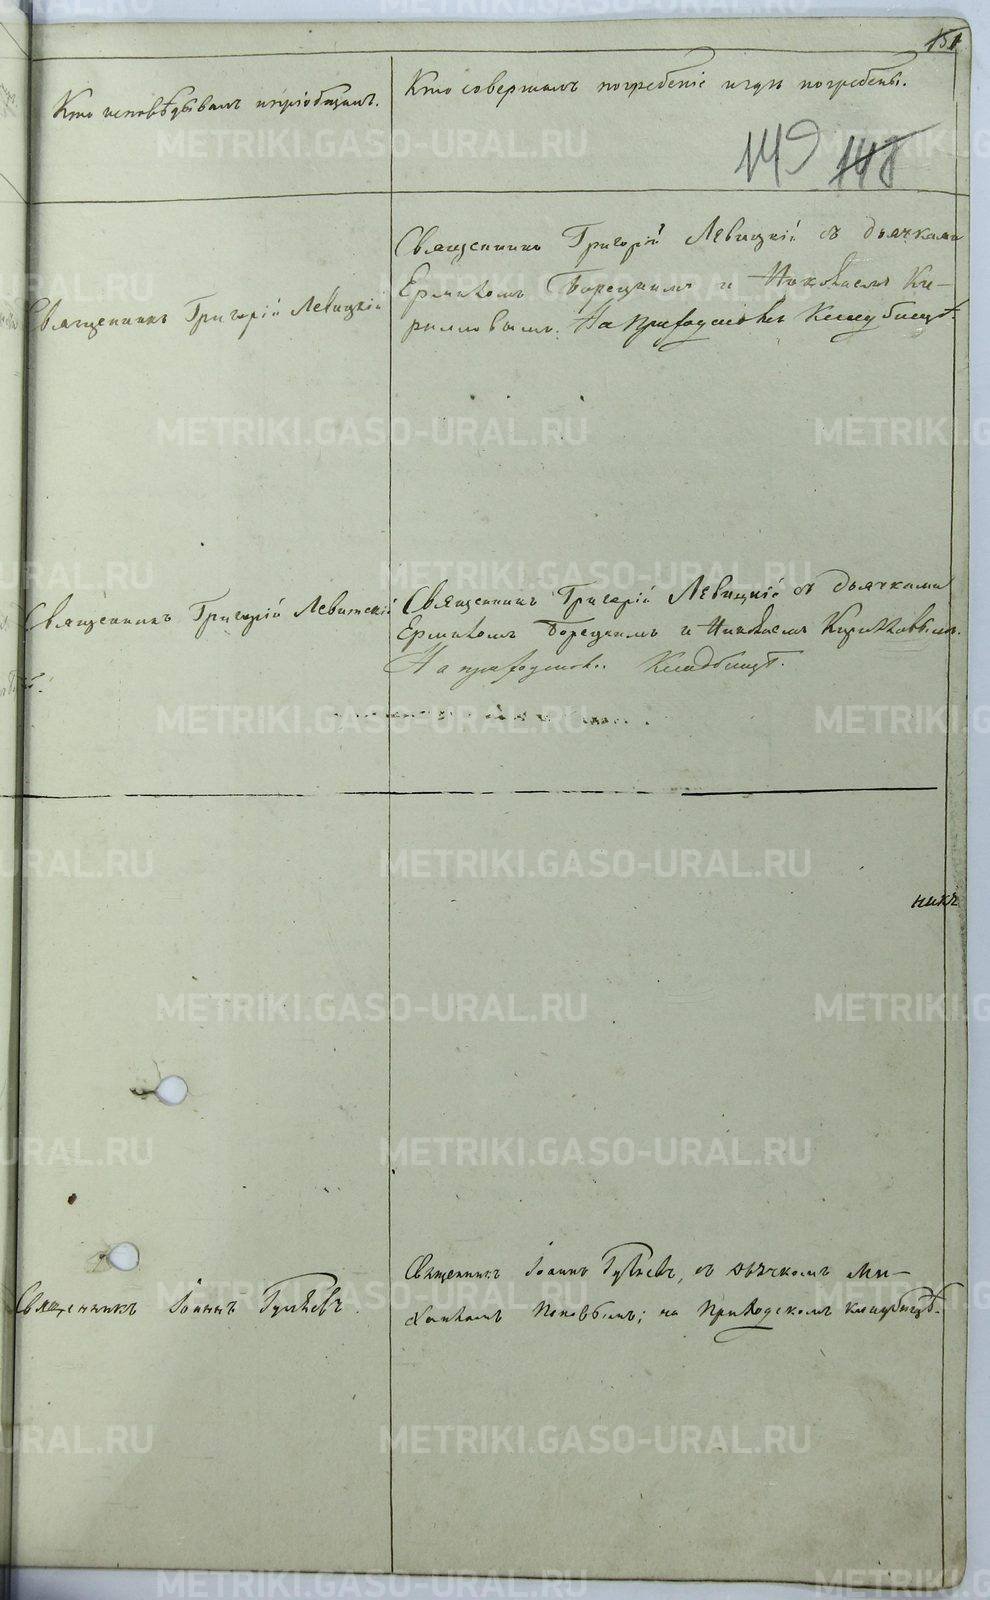 151
Кто исповѣдывалъ и пріобщалъ.
Кто совершалъ погребеніе и гдѣ погребены.
149 148
Священникъ Григорій Левицкій
Священникъ Григорій Левицкій съ дьячками
Ермиломъ Борецкимъ и Николаемъ Ки-
рилловымъ. На приходскомъ кладбищѣ.
Священникъ Григорій Левитскій
Священникъ Григорій Левицкій съ дьячками
Борецкимъ и Николаемъ Кирилловымъ.
На приходском. Кладбищѣ.
никъ
Священникъ Іоаннъ
Священникъ Іоаннъ съ дьячкомъ Ми-
хаиломъ Поповымъ; на Приходскомъ кладбищѣ.
METRIKI.GASO-URAL.RU